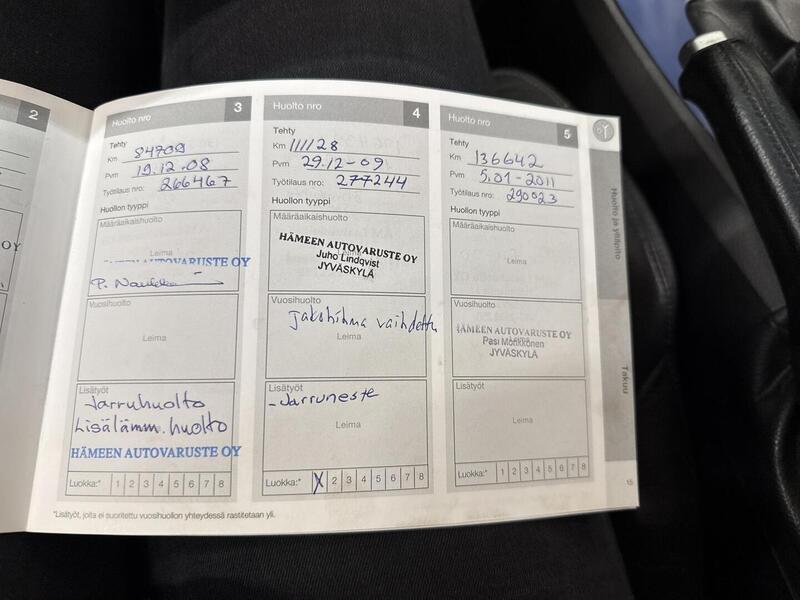 2
Huolto nro 3
Tehty
Km 84709
Pvm 19.12.08
Työtilaus nro: 266467
Huollon tyyppi
Määräaikaishuolto
Leima
AUTOVARUSTE OY
P.
Vuosihuolto
Leima
Lisätyöt
Jarruhuolto
Lisälämm. huolto
HÄMEEN AUTOVARUSTE OY
Luokka:* 1 2 3 4 5 6 7 8
*Lisätyöt, joita ei suoritettu vuosihuollon yhteydessä rastitetaan yli.
Huolto nro 4
Tehty
Km 111128
Pvm 29.12-09
Työtilaus nro: 277244
Huollon tyyppi
Määräaikaishuolto
Leima
HÄMEEN AUTOVARUSTE OY
Juho Lindqvist
JYVÄSKYLÄ
Vuosihuolto
Jakohihna vaihdettu
Leima
Lisätyöt
-Jarruneste
Leima
Luokka:* 1 2 3 4 5 6 7 8
Huolto nro 5
Tehty
Km 136642
Pvm 5.01-2011
Työtilaus nro: 290023
Huollon tyyppi
Määräaikaishuolto
Leima
Vuosihuolto
Leima
HÄMEEN AUTOVARUSTE OY
Pasi Mörkkönen
JYVÄSKYLÄ
Lisätyöt
Leima
Luokka:* 1 2 3 4 5 6 7 8
Huolto ja ylläpito
Takuu
15